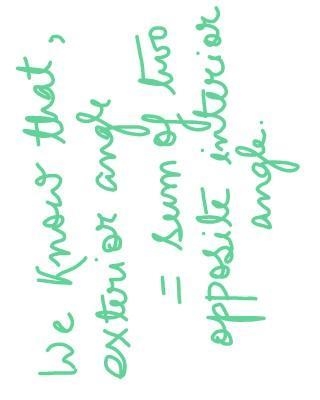 We know that,
exterior angle
= sum of two
opposite interior
angle.